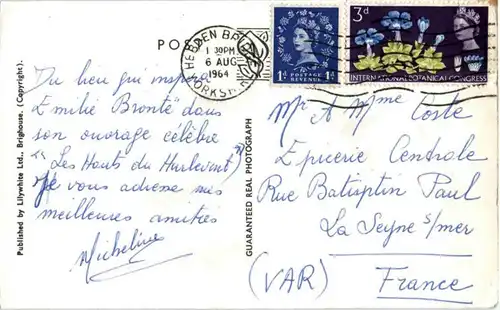 POS
HEBDEN BR
1 30PM
6 AUG
1964
YORKS
1D
POSTAGE
REVENUE
1D
3D
INTERNATIONAL BOTANICAL CONGRESS
Du lieu qui inspira
Emilie Brontë dans
son ouvrage célèbre
"Les Hauts du Hurlevent"
Je vous adresse mes
meilleures amitiés
Micheline
Published by Lilywhite Ltd., Brighouse. (Copyright).
GUARANTEED REAL PHOTOGRAPH
Mr A Mme Coste
Epicerie Centrale
Rue Batisptin Paul
La Seyne s/mer
(VAR) France